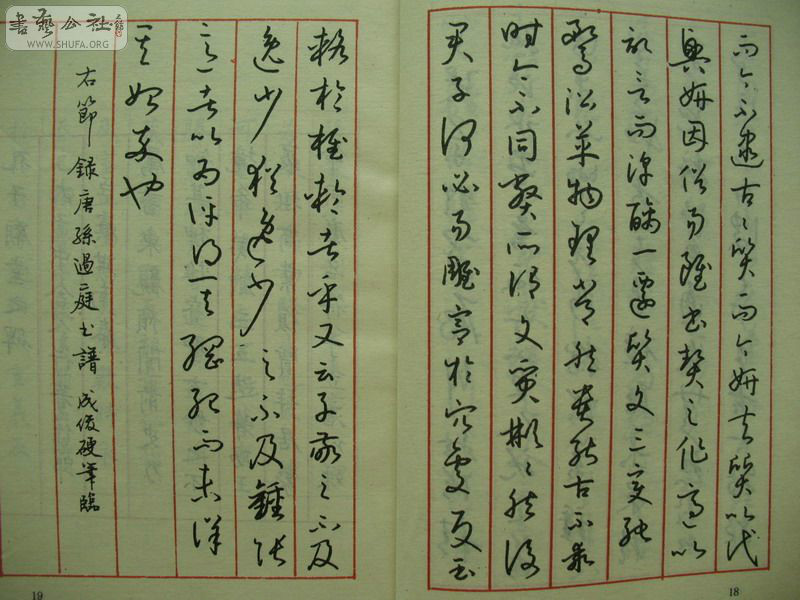 而今不逮古〻質而今妍夫質以代
興妍因俗易雖書契之作適以
記言而淳醨一遷質文三變馳
騖沿革物理常然貴能古不乖
時今不同弊所謂文質彬〻然後
君子何必易雕宮於穴處反玉
18
輅於椎輪者乎又云子敬之不及
逸少猶逸少之不及鍾張
意者以為評得其綱紀而未詳
其始卒也
右節録唐孫過庭書譜 成俊硬筆臨
19
書藝公社
WWW.SHUFA.ORG